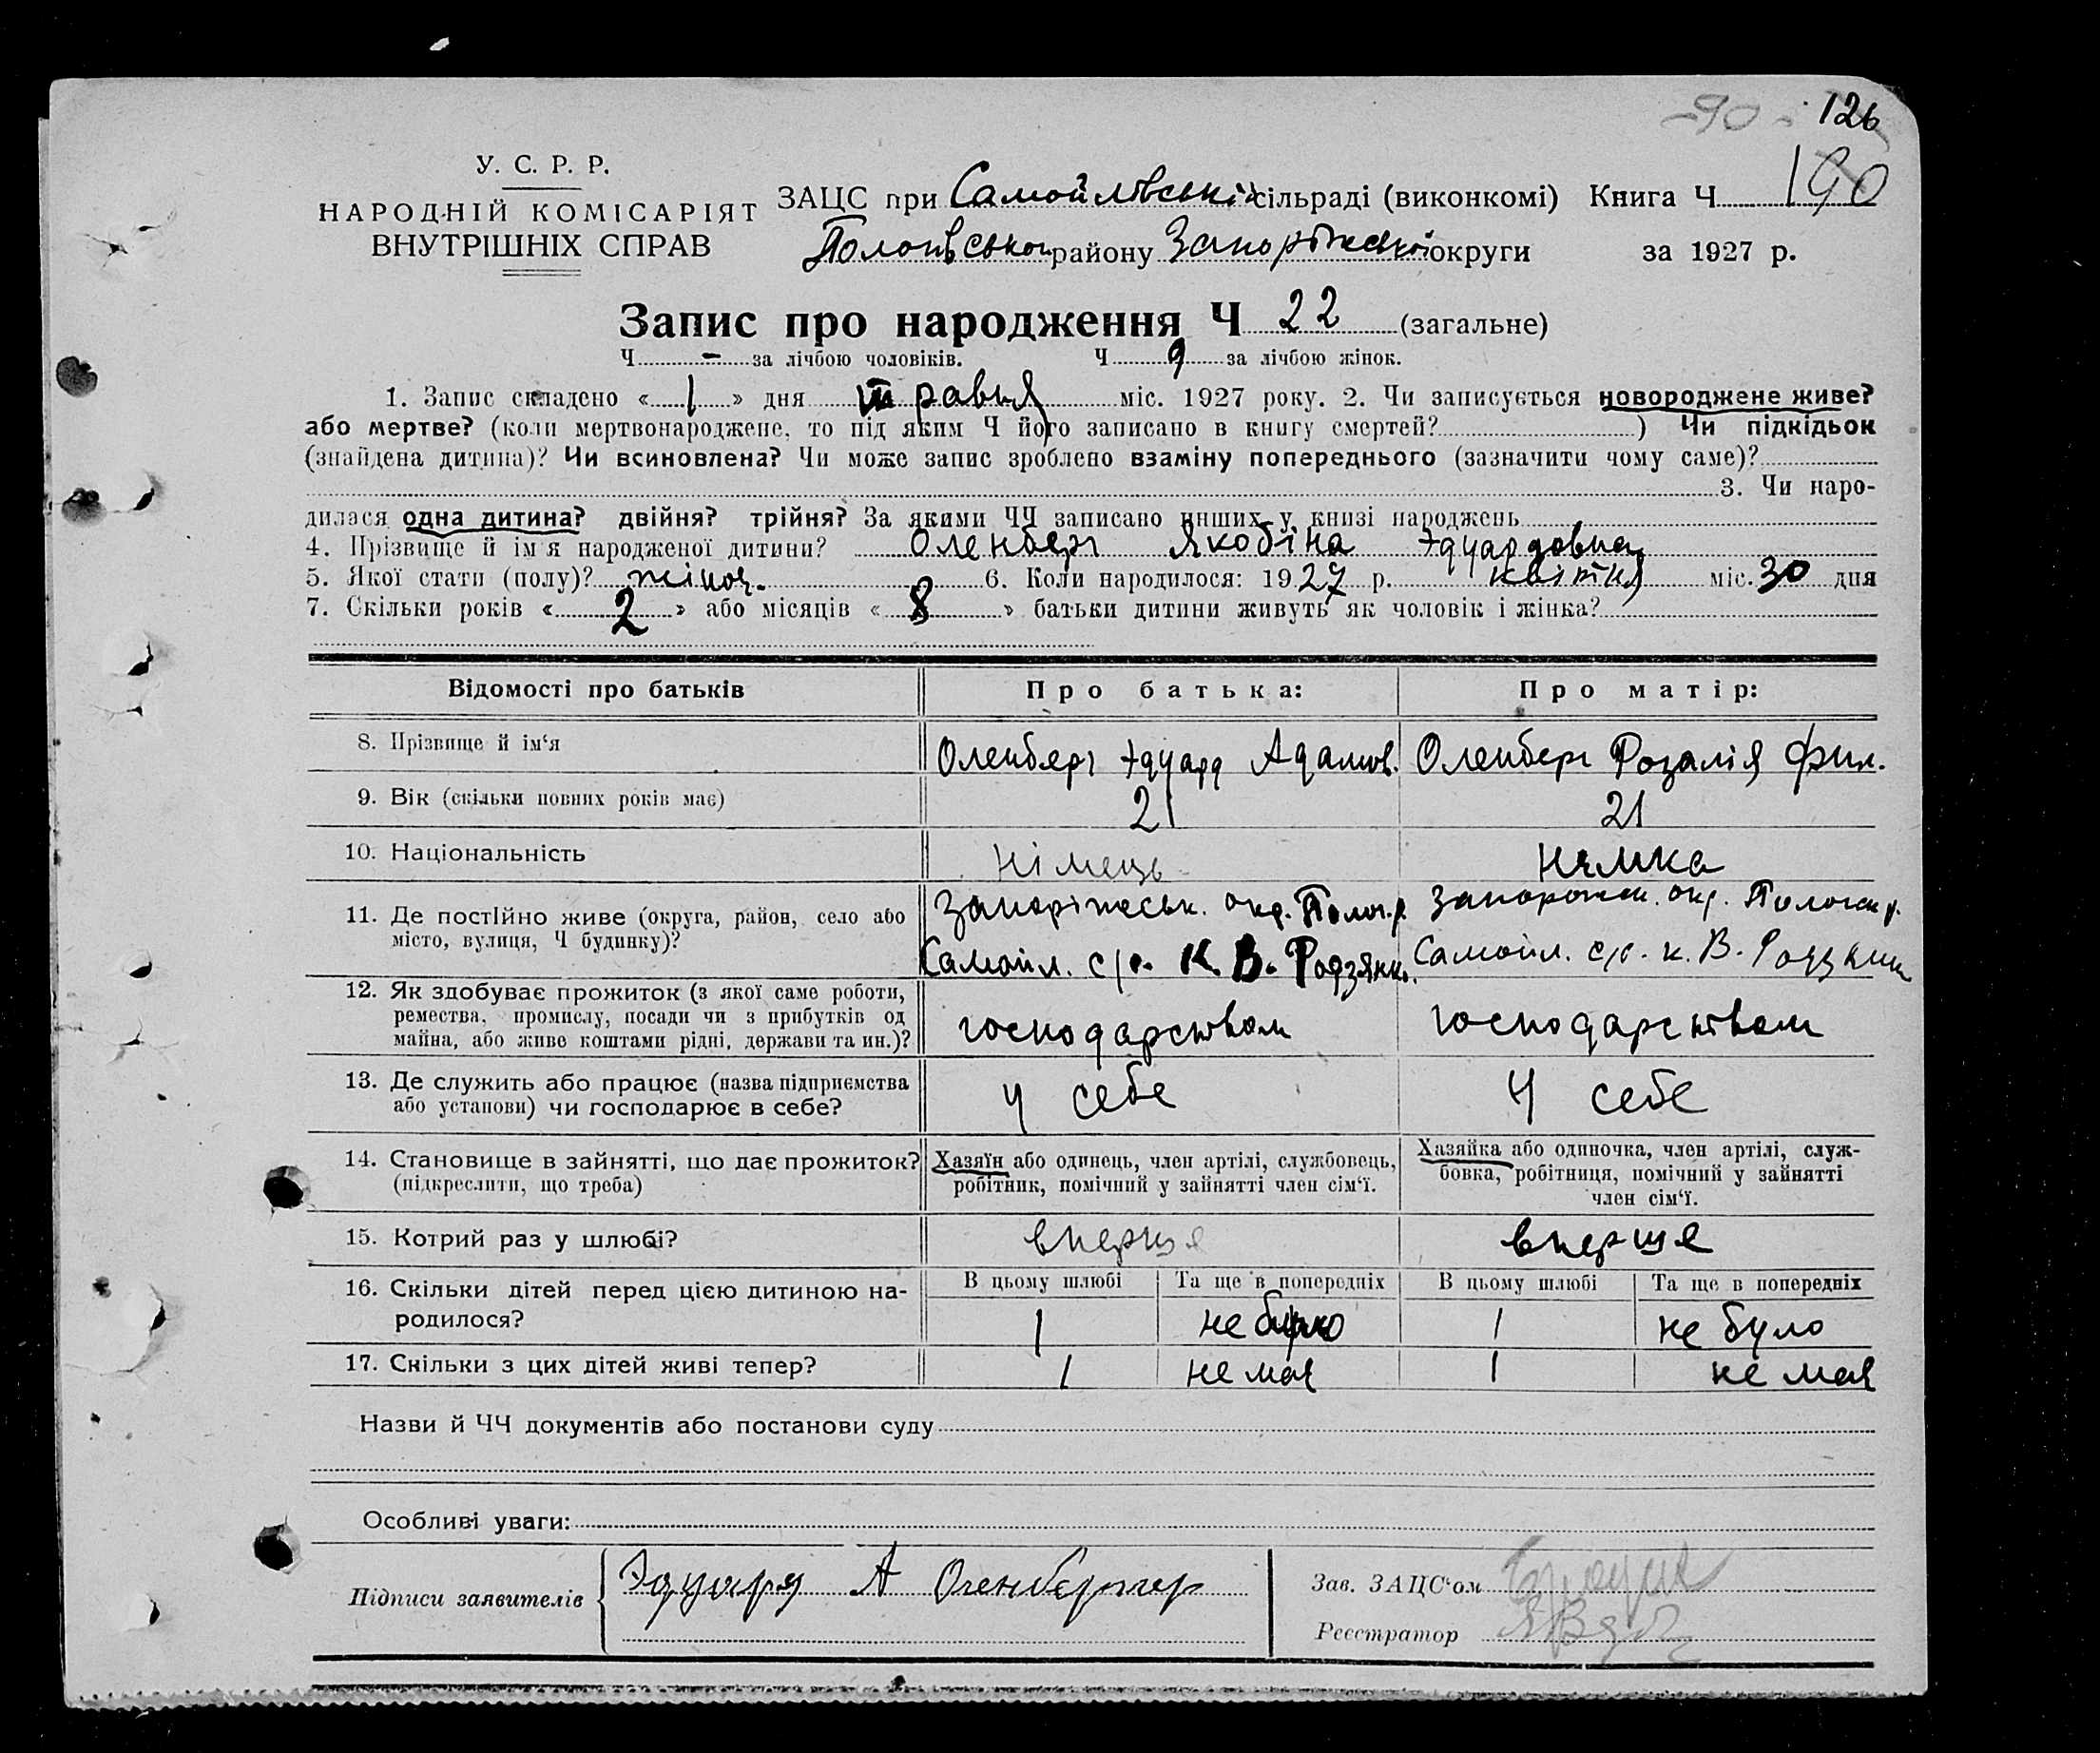 90 126
У. С. Р. Р.
НАРОДНІЙ КОМІСАРІЯТ
ВНУТРІШНІХ СПРАВ
ЗАЦС при Самойлівській сільраді (виконкомі) Книга Ч 190
Пологівського району Запоріжської округи за 1927 р.
Запис про народження Ч 22 (загальне)
Ч - за лічбою чоловіків. Ч 9 за лічбою жінок.
1. Запис складено « 1 » дня травня міс. 1927 року. 2. Чи записується новороджене живе?
або мертве? (коли мертвонароджене, то під яким Ч його записано в книгу смертей? ) Чи підкідьок
(знайдена дитина)? Чи всиновлена? Чи може запис зроблено взаміну попереднього (зазначити чому саме)?
3. Чи наро-
дилася одна дитина? двійня? трійня? За якими ЧЧ записано инших у книзі народжень
4. Прізвище й ім'я народженої дитини? Оленберг Якобіна Эдуардовна
5. Якої стати (полу)? жіноч. 6. Коли народилося: 1927 р. квітня міс. 30 дня
7. Скільки років « 2 » або місяців « 8 » батьки дитини живуть як чоловік і жінка?
Відомості про батьків Про батька: Про матір:
8. Прізвище й ім'я Оленберг Эдуард Адамов. Оленберг Розалія Фил.
9. Вік (скільки повних років має) 21 21
10. Національність німець нямка
11. Де постійно живе (округа, район, село або
місто, вулиця, Ч будинку)?
Запоріжськ. окр. Полог. р. Запорожск. окр. Пологск р.
Самойл. с/р. К. В. Родзянк. Самойл. с/р. к. В.
12. Як здобуває прожиток (з якої саме роботи,
ремества, промислу, посади чи з прибутків од
майна, або живе коштами рідні, держави та ин.)?
господарством господарством
13. Де служить або працює (назва підприємства
або установи) чи господарює в себе?
У себе У себе
14. Становище в зайнятті, що дає прожиток?
(підкреслити, що треба)
Хазяїн або одинець, член артілі, службовець,
робітник, помічний у зайнятті член сім'ї.
Хазяйка або одиночка, член артілі, служ-
бовка, робітниця, помічний у зайнятті
член сім'ї.
15. Котрий раз у шлюбі? вперше вперше
16. Скільки дітей перед цією дитиною на-
родилося?
В цьому шлюбі Та ще в попередніх В цьому шлюбі Та ще в попередніх
1 не було 1 не було
17. Скільки з цих дітей живі тепер? 1 не мая 1 не мая
Назви й ЧЧ документів або постанови суду
Особливі уваги:
Підписи заявителів Эдуард А Оленбергер
Зав. ЗАЦС'ом
Реєстратор